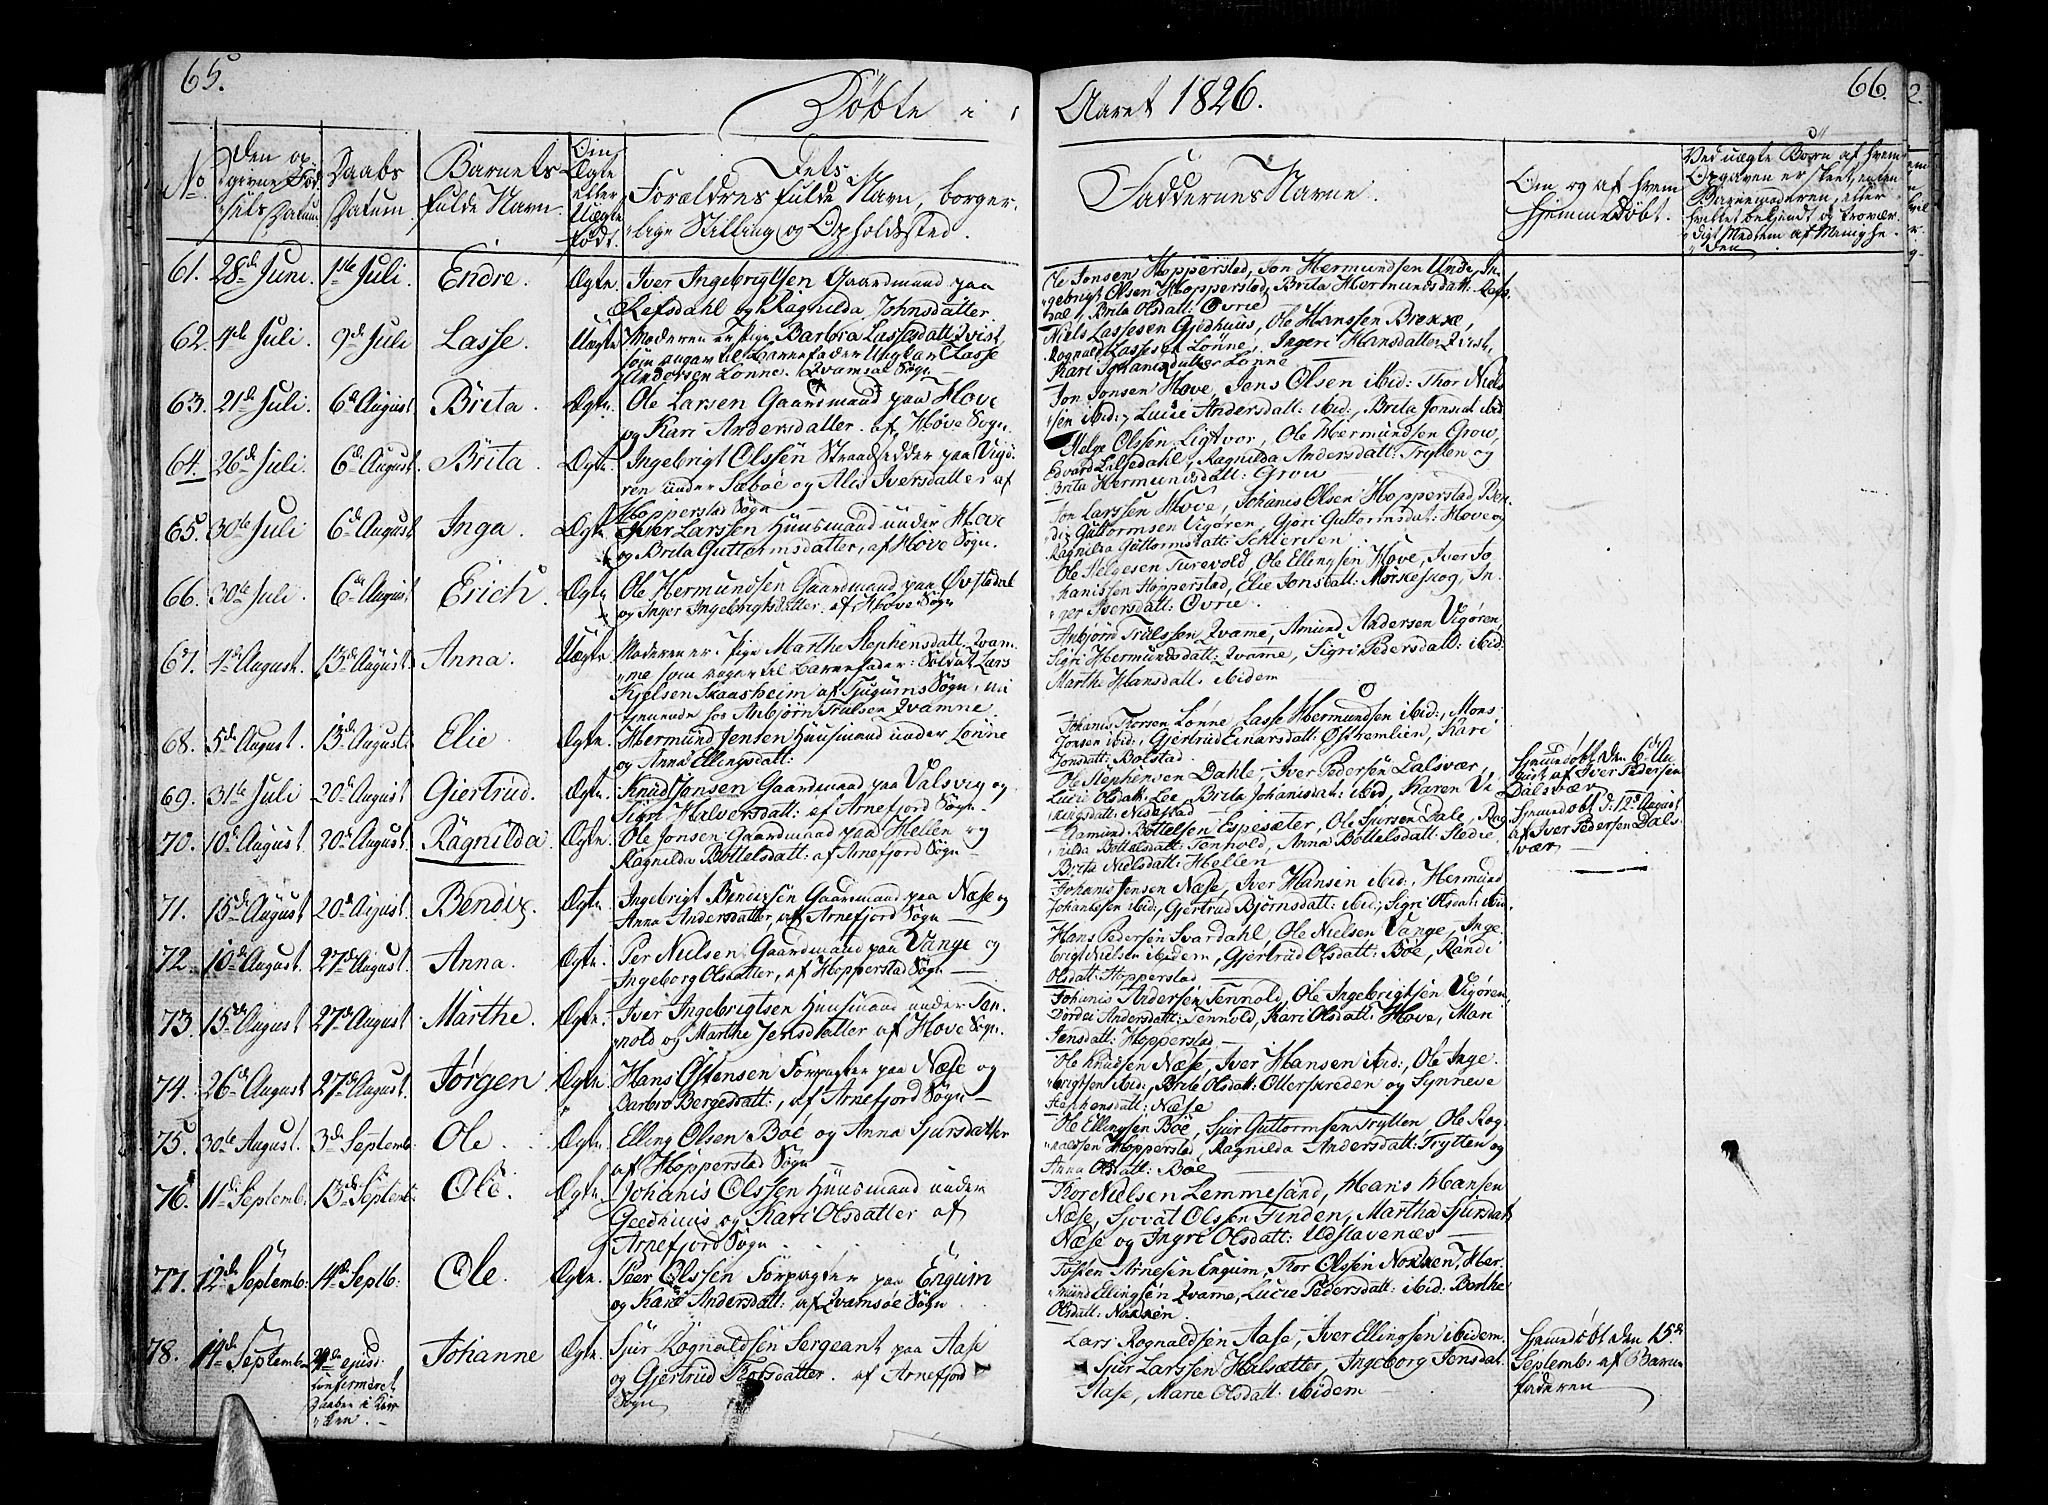 65.
Döbte i
Aaret 1826.
66.
No
Den opgivne Födsels Datum
Daabs Datum
Barnets fulde Navn.
Om Ægte eller Uægte født.
Dets Forældres fulde Navn, borgerlige Stilling og Opholdssted.
Faddernes Navne.
Om og af hvem hjemmedøbt.
Ved uægte Børn af hvem Opgaven er skeet, enten Barnemoderen, eller hvilket bekjendt og troværdigt Medlem af Menigheden
61. 28de Juni 1ste Juli Endre Ægte. Iver Ingebrigtsen Gaardmand paa
Refsdahl og Ragnilda Johnsdatter.
Ole Jonsen Hopperstad, Jon Hermundsen Unde, In-
gebrigt Olsen Hopperstad, Brita Hermundsdatt: Refs-
dal, Brita Olsdatt: Øvrie
62. 4de Juli. 9de Juli Lasse. Uægte Moderen er Pige Barbra Lassesdatt: Qvist,
som angav til Barnefader Ungkarl Lasse
Andersen Lønne. Qvamsøe Sogn
Niels Lassesen Gjedhuus, Ole Hanssen Brekke,
Rognald Lassesen Lønne, Ingeri Hansdatter Qvist,
Kari Johanisdatter Lønne
63. 21de Juli. 6de August Brita. Ægte. Ole Larsen Gaardmand paa Hove
og Kari Andersdatter. af Hove Sogn.
Jon Jonsen Hove, Jens Olsen ibid: Thor Niels
sen ibid:, Lucie Andersdatt: ibid:, Brita Jonsdat ibid
64. 26de Juli. 6de August. Brita. Ægte. Ingebrigt Olssen Strandsidder paa Vigö-
ren under Sæbøe og Alis Iversdatter af
Hopperstad Sogn
Helge Olssen Ligtvor, Ole Hermundsen Grow,
Edvard Lalsedahl, Ragnilda Andersdatt: Trytten og
Brita Hermundsdatt: Grow
65. 30te Juli 6de August Inga. Ægte. Iver Larssen Huusmand under Hove
og Brita Guttormsdatter, af Hove Sogn.
Jon Larssen Hove, Johanis Olsen Hopperstad, Ben-
dix Guttormsen Vigøren, Gjøri Guttormsdat: Hove og
Ragnilda Guttormsdatt:
66. 30te Juli. 6de August Erich. Ægte. Ole Hermundsen Gaardmand paa Øvstedal
og Inger Ingebrigtsdatter. af Hove Sogn
Ole Helgesen Turevold, Ole Ellingsen Hove, Iver Jo-
hanissen Hopperstad, Elie Jonsdatt: Mørkeskog, In-
ger Iversdatt: Øvrie.
67. 4de August. 13de August. Anna. Uægte. Moderen er Pige Marthe Stephensdatt: Qvam-
me som angav til Barnefader: Soldat Lars
Kjelsen Skaasheim af Tjugums Sogn, nu
tjenende hos Anbjørn Trulsen Qvamne
Anbjörn Trulssen Qvame, Amund Andersen Vigøren,
Sigri Hermundsdatt: Qvame, Sigri Pedersdatt: ibid:
Marthe Hansdatt: ibidem
68. 5de August. 13de August: Elie. Ægte. Hermund Jensen Huusmand under Lönne
og Anna Ellingsdatt:
Johanis Thorsen Lønne, Lasse Hermundsen ibid:, Mons
Jonsen ibid:, Gjertrud Einarsdatt: Østremlien, Kari
Jonsdatt: Bolstad.
69. 31te Juli 20de August Giertrud. Ægte. Knud Jonsen Gaardmand paa Valsvig og
Sigri Halversdatt: af Arnefjord Sogn.
Ole Stephensen Dahle, Iver Pedersen Dalsvær,
Lucie Olsdatt: Lee, Brita Johanisdat: ibid, Karen Vi-
kingsdatt: Nisestad
Hjemmdøbt den 6de Au-
gust af Iver Pedersen
Dalsvær
70. 10de August 20de August. Ragnilda Ægte. Ole Jonsen Gaardmand paa Hellen og
Ragnilda Bottelsdatt: af Arnefjord Sogn
Aamund Bottelsen Espesæter, Ole Sjursen Dale, Rag-
nilda Bottelsdatt: Tenhold, Anna Bottelsdatt: Stedie
Brita Nielsdatt: Hellen
Hjemmdøbt d: 12te August
af Iver Pedersen Dals-
vær
71. 15de August 20de August. Bendix. Ægte. Ingebrigt Bendixsen Gaardmand paa Næse og
Anna Andersdatter, af Arnefjord Sogn
Johanis Jensen Næse, Iver Hansen ibid:, Hermund
Johannssen ibid:, Gjertrud Bjørnsdatt: ibid:, Sigri Olsdat: ibid.
72. 10de August. 27de August. Anna. Ægte. Per Nielsen Gaardmand paa Vange og
Ingeborg Olsdatter, af Hopperstad Sogn
Hans Pedersen Svardahl, Ole Nielsen Vange, Inge-
brigt Nielsen ibidem, Gjertrud Olsdatt: Böe, Randi
Olsdatt: Hopperstad
73. 15de August 27de August. Marthe. Ægte. Iver Ingebrigtsen Huusmand under Ten-
nold og Marthe Jensdatter af Hove Sogn.
Johanis Andersen Tennold, Ole Ingebrigtsen Vigören,
Dordei Andersdatt: Tennold, Kari Olsdatt: Hove, Mari
Jensdatt: Hopperstad
74. 26de August 27de August. Jørgen Ægte. Hans Östensen Forpagter paa Næse og
Barbro Bergesdatt:, af Arnefjord Sogn
Ole Knudsen Næse, Iver Hansen ibid:, Ole Inge-
brigtsen ibid:, Brita Olsdatt: Otterskreden og Synneve
Stephensdatt: Næse
75. 30te August. 3de Septemb: Ole Ægte. Elling Olsen Böe og Anna Sjursdatter
af Hopperstad Sogn
Ole Ellingsen Böe, Sjur Guttormsen Trytten, Ole Rog-
naldsen Hopperstad, Ragnilda Andersdatt: Trytten og
Anna Olsdatt: Böe
76. 11de Septemb: 13de Septemb: Ole. Ægte. Johanis Olssen Huusmand under
Geedhuus og Kari Olsdatter af
Arnefjord Sogn.
Thor Nielsen Lemmesand, Hans Hansen
Næse, Sjovat Olssen Finden, Martha Sjursdat
Næse og Ingri Olsdatt: Udslavenæs
77. 12de Septemb: 14de Septb: Ole. Ægte. Peer Olssen Forpagter paa Engum
og Kari Andersdatt: af Qvamsøe Sogn
Tosten Arnesen Engum, Thor Olssen Nokken, Her-
mund Ellingsen Qvame, Lucie Pedersdatt: ibid: Barthe
Olsdatt: Nokken
78. 14de Septembr 24de ejusd: confirmeret Daaben i Kirken. Johanne Ægte. Sjur Rognaldsen Sergeant paa Aase
og Gjertrud Rolsdatter. af Arnefjord
Sogn
Lars Rognaldsen Aase, Iver Ellingsen ibidem,
Sjur Larssen Halsætter, Ingeborg Jensdat.
Aase, Marie Olsdatt: ibidem
Hjemmdøbt den 15de
Septemb: af Barne
faderen